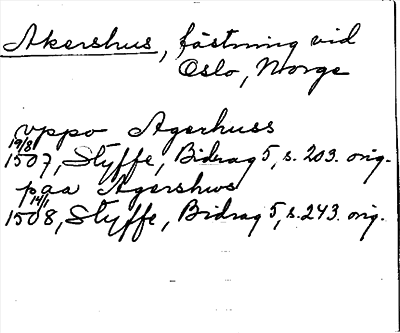 Akershus, fästning vid
Oslo, Norge
vppo Agerhuss
19/8
1507, Styffe, Bidrag 5, s. 203. orig.
paa Agershws
14/1
1508, Styffe, Bidrag 5, s. 243. orig.